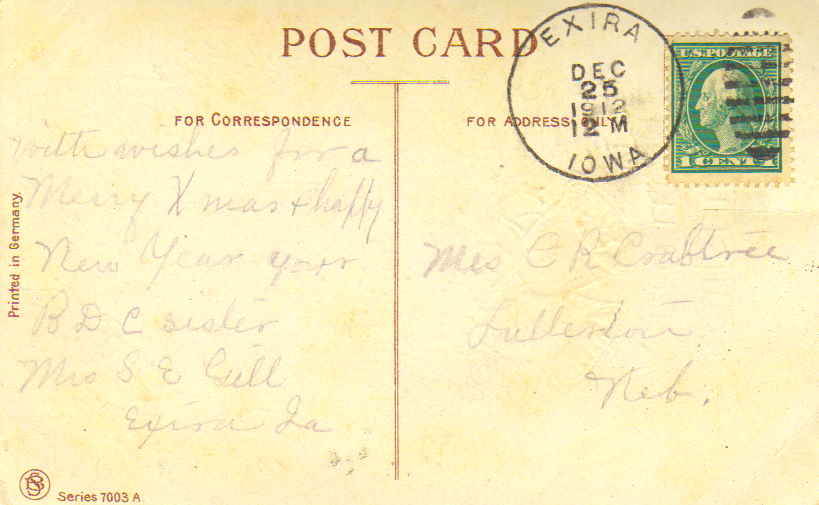 POST CARD
EXIRA
DEC
25
1912
12 M
IOWA
U.S. POSTAGE
1 CENT 1
FOR CORRESPONDENCE
FOR ADDRESS ONLY
With wishes for a
Merry Xmas & happy
New Year your
B D C sister
Mrs S E Gill
Exira Ia
Mrs C R Crabtree
Neb.
Printed in Germany.
Series 7003 A.